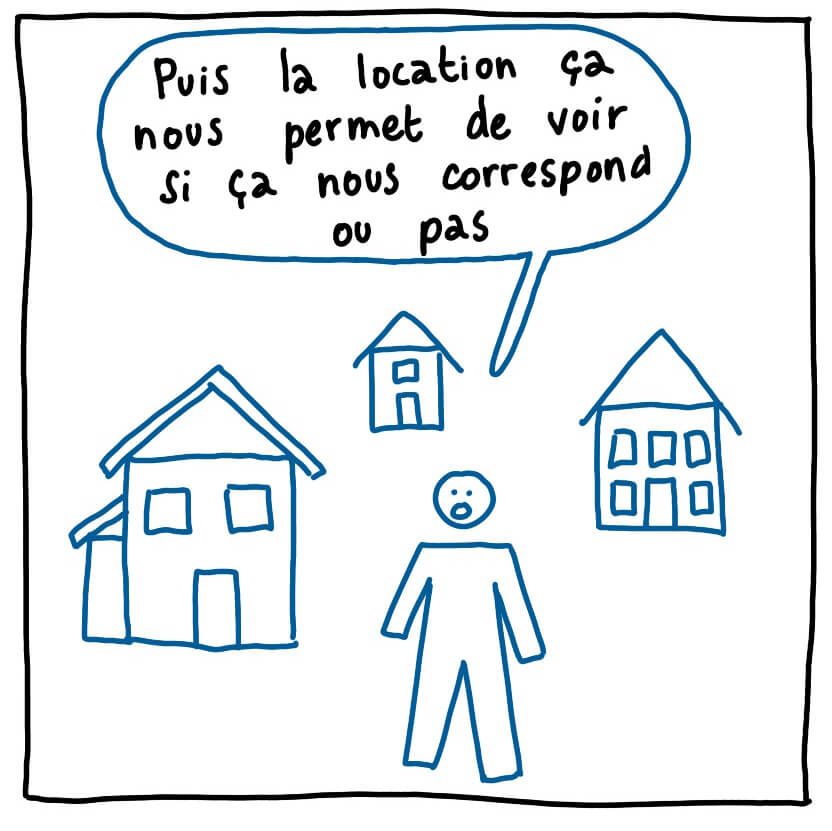 Puis la location ça
nous permet de voir
si ça nous correspond
ou pas